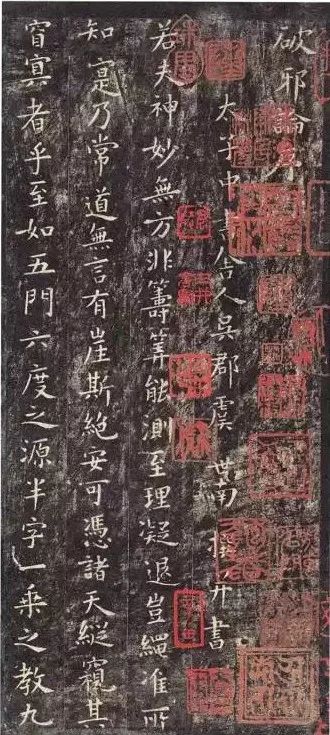 破邪論序
太子中書舍人吳郡虞世南撰并書
若夫神妙無方非籌筭能測至理凝邈豈繩准所
知寔乃常道無言有崖斯絕安可憑諸天縱窺其
窅冥者乎至如五門六度之源半字一乘之教九